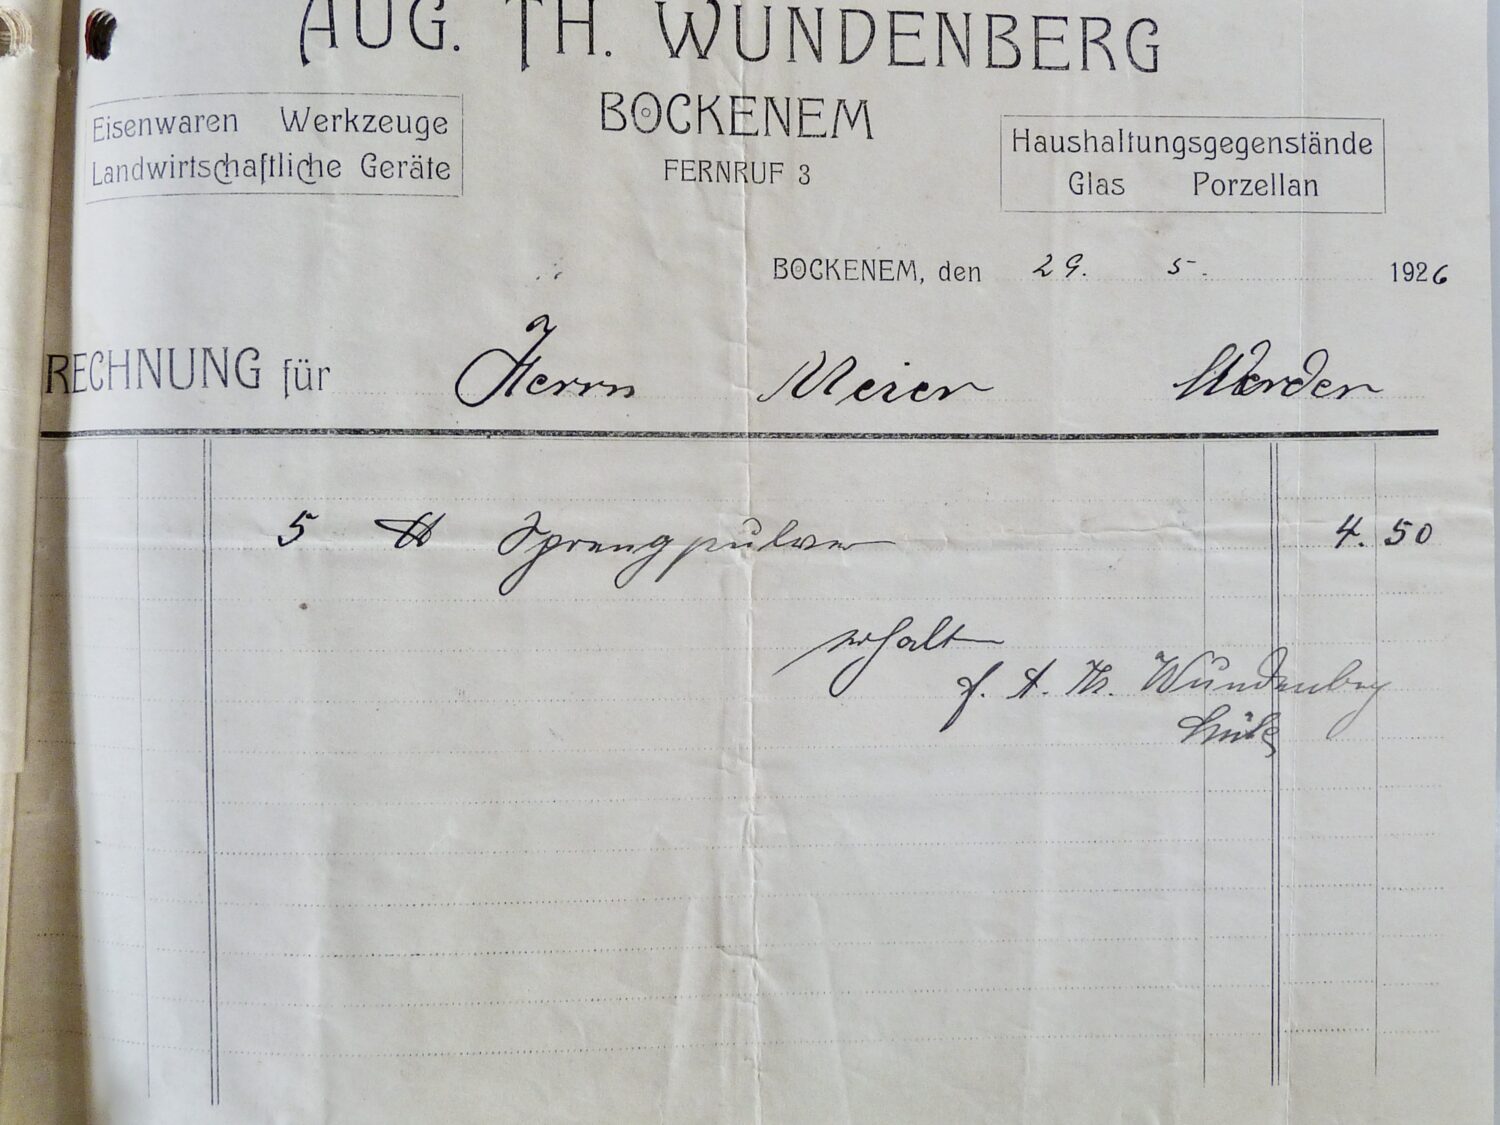 AUG. TH. WUNDENBERG
BOCKENEM
FERNRUF 3
Eisenwaren Werkzeuge
Landwirtschaftliche Geräte
Haushaltungsgegenstände
Glas Porzellan
BOCKENEM, den 29. 5. 1926
RECHNUNG für Herrn Meier Werder
5 ℔ Sprengpulver 4.50
erhalt
f. A. Th. Wundenberg